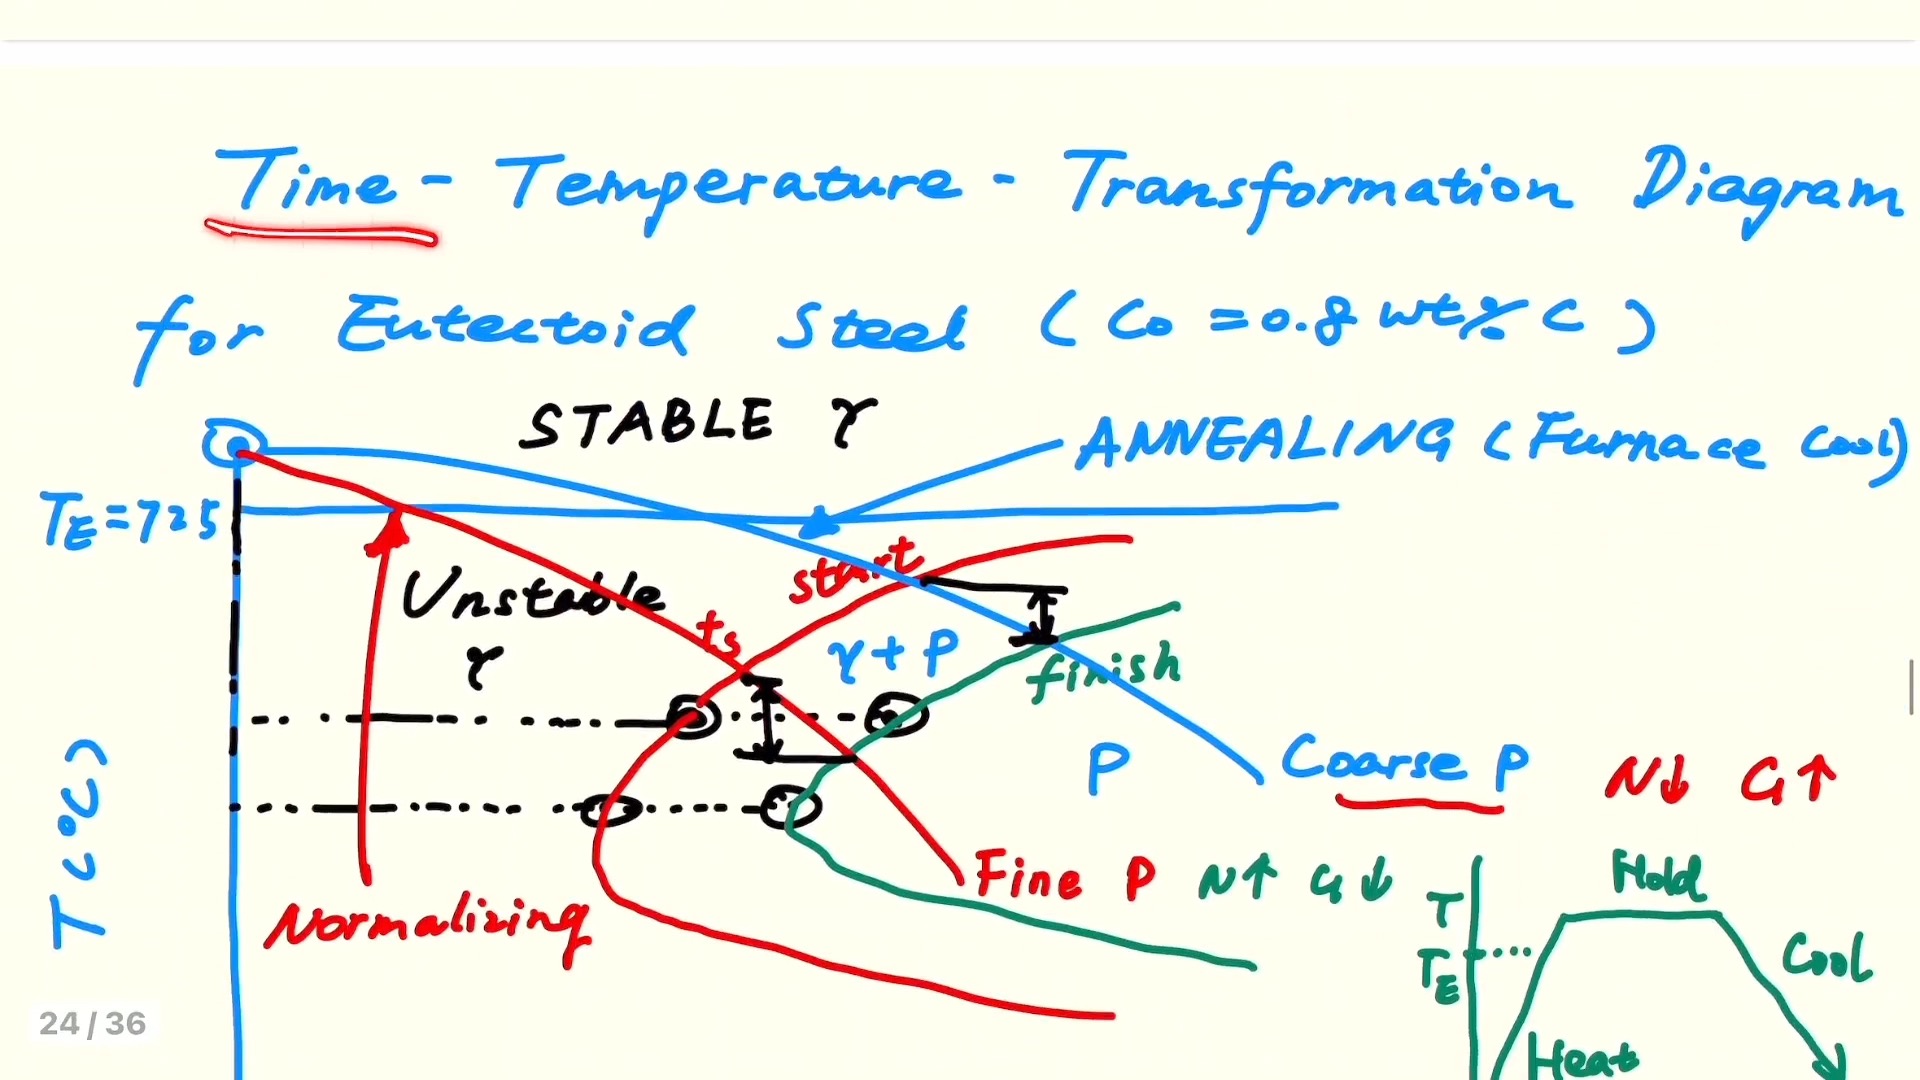 Time - Temperature - Transformation Diagram
for Eutectoid Steel ( Co = 0.8 wt% C )
STABLE γ
ANNEALING (Furnace Cool)
TE = 725
start
Unstable
γ
ts
γ + P
finish
T (°C)
P
Coarse P N↓ G↑
Fine P N↑ G↓
Normalizing
Hold
T
TE
Cool
Heat
24 / 36